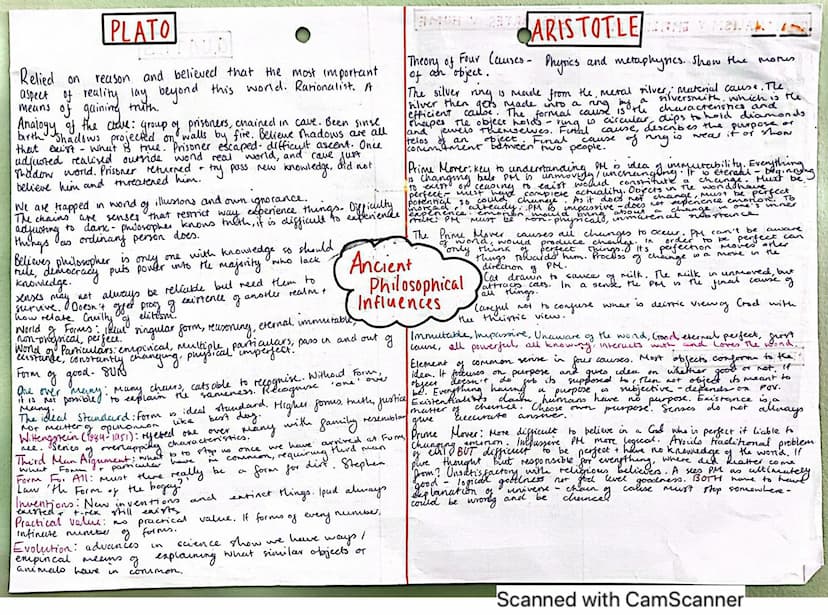 PLATO
Relied on reason and believed that the most important
aspect of reality lay beyond this world. Rationalist. A
means of gaining truth.
Analogy of the cave: group of prisoners, chained in cave. Been since
birth. Shadows projected on walls by fire. Believe shadows are all
that exist - what is true. Prisoner escaped. difficult ascent. Once
adjusted realised outside world real world, and cave just
shadow world. Prisoner returned + try pass new knowledge, did not
believe him and threatened him.
We are trapped in world of illusions and own ignorance.
The chains are senses that restrict way experience things. Difficulty
adjusting to dark - philosopher knows truth, it is difficult to experience
things as ordinary person does.
Believes philosopher is only one with knowledge so should
rule, democracy puts power into the majority who lack
knowledge.
senses may not always be reliable but need them to
survive. Doesn't offer proof of existence of another realm +
how relate. Guilty of elitism.
World of Forms: ideal singular form, reasoning, eternal, immutable,
non-physical, perfect.
World of Particulars: empirical, multiple, particulars, pass in and out of
existence, constantly changing, physical imperfect.
Form of good - SUN
One over many: Many chairs, cats able to recognise. Without Form,
it is not possible to explain the sameness. Recognise 'one' over
many.
The ideal standard: Form is ideal standard. Higher forms, truth, justice
not matter of opinion like best day.
Wittgenstein: rejected one over many with family resemblan
ce. Series of overlapping characteristics.
Third Man Argument: what is to stop us once we have arrived at Form,
what Form + particular in common, requiring third man
Form For All: Must there really be a form for dirt. Stephen
Law 'the Form of the bogey'
Inventions: New inventions and extinct things. Ipad always
existed + t-rex still exists
Practical value: no practical value. If forms of every number,
infinite number of forms.
Evolution: advances in science show we have ways/
empirical means of explaining what similar objects or
animals have in common.
Ancient
Philosophical
Influences
ARISTOTLE
Theory of Four Causes - Physics and metaphysics. Show the
of an object.
The silver ring is made from the metal silver, material cause. The
silver then gets made into a ring by a silversmith, which is the
efficient cause. The formal cause is the characteristics and
shapes the object holds - ring is circular, dips to hold diamonds
and jewels themselves. Final cause, describes the purpose or
telos of an object. Final cause of ring is wear or show
commitment between two people.
Prime Mover: key to understanding PM is idea of immutability. Everything
is changing but PM is unmoving/unchanging. It is eternal - beginning
to exist or ceasing to exist would constitute a change. Must be
perfect - must have complete actuality. Objects in the world have
potential so could change. As it does not change, must be perfect
already. PM is impassive - does not experience emotion. To
experience emotion would bring about a change in one's inner
state. PM must be non-physical, immaterial substance
The Prime Mover causes all changes to occur. PM can't be aware
of world, would produce change. In order to be perfect can
only think of perfect things. Its perfection moves other
things towards him. Process of change is a move in the
direction of PM.
Cat drawn to saucer of milk. The milk in unmoved, but
attracts cats. In a sense the PM is the final cause of
all things.
Careful not to confuse what is deistic view of God with
the theistic view.
Immutable, Impassive, Unaware of the world, Good eternal perfect, first
cause, all powerful, all knowing. interacts with and loves the world.
Element of common sense in four causes. Most objects conform to the
idea. It focuses on purpose and gives idea on whether good or not. If
object doesn't do job its supposed to, then not object its meant to
be. Everything having a purpose is subjective - dependent on Pov.
Existentialists claim humans have no purpose. Existence is a
matter of chance. Choose own purpose. Senses do not always
give accurate answer.
Prime Mover: More difficult to believe in a God who is perfect if liable to
changing emotion. Impassive PM more logical. Avoids traditional problem
of evil. BUT difficult to be perfect + have no knowledge of the world. If
pure thought but responsible for everything, where did matter come
from? Unsatisfactory with religious believers. A sees PM as ultimately
good - logical goodness not God level goodness. BOTH have to have
explanation of universe - chain of cause must stop somewhere -
could be wrong and be chance!
Scanned with CamScanner